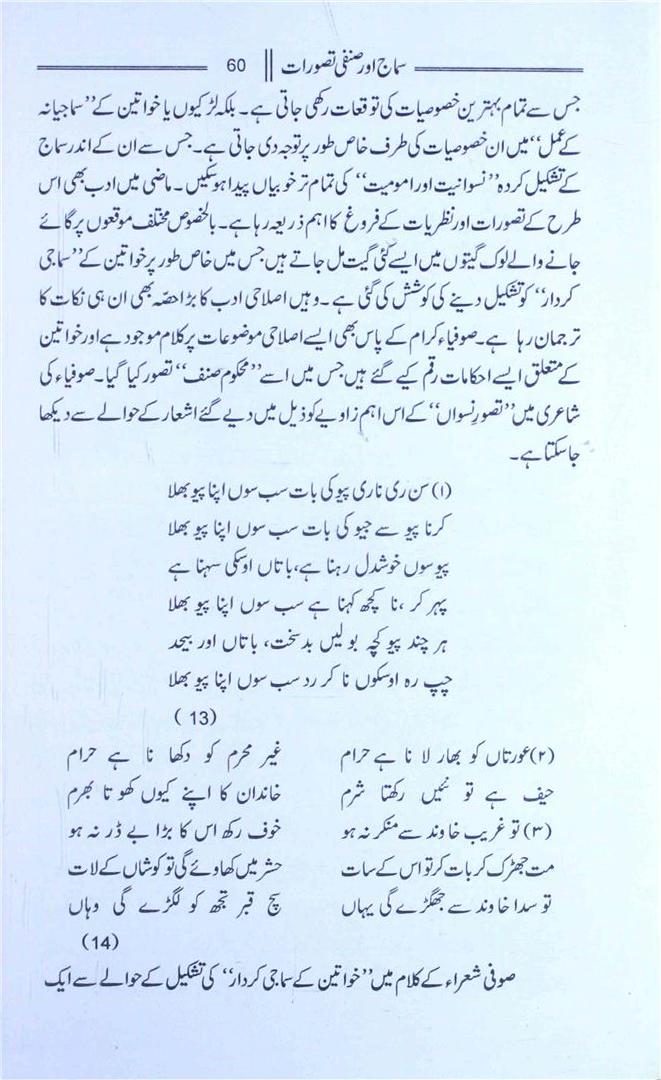 سماج اور صنفی تصورات || 60
جس سے تمام بہترین خصوصیات کی توقعات رکھی جاتی ہے۔ بلکہ لڑکیوں یا خواتین کے ”سماجیانہ
کے عمل“ میں ان خصوصیات کی طرف خاص طور پر توجہ دی جاتی ہے۔ جس سے ان کے اندر سماج
کے تشکیل کردہ ”نسوانیت اور امومیت“ کی تمام تر خوبیاں پیدا ہوسکیں۔ ماضی میں ادب بھی اس
طرح کے تصورات اور نظریات کے فروغ کا اہم ذریعہ رہا ہے۔ بالخصوص مختلف موقعوں پر گائے
جانے والے لوک گیتوں میں ایسے کئی گیت مل جاتے ہیں جس میں خاص طور پر خواتین کے ”سماجی
کردار“ کو تشکیل دینے کی کوشش کی گئی ہے۔ وہیں اصلاحی ادب کا بڑا حصّہ بھی ان ہی نکات کا
ترجمان رہا ہے۔ صوفیاء کرام کے پاس بھی ایسے اصلاحی موضوعات پر کلام موجود ہے اور خواتین
کے متعلق ایسے احکامات رقم کیے گئے ہیں جس میں اسے ”محکوم صنف“ تصور کیا گیا۔ صوفیاء کی
شاعری میں ”تصورِ نسواں“ کے اس اہم زاویے کو ذیل میں دیے گئے اشعار کے حوالے سے دیکھا
جاسکتا ہے۔
(۱) سن ری ناری پیو کی بات سب سوں اپنا پیو بھلا
کرنا پیو سے جیو کی بات سب سوں اپنا پیو بھلا
پیو سوں خوشدل رہنا ہے، باتاں اوسکی سہنا ہے
پہر کر، نا کچھ کہنا ہے سب سوں اپنا پیو بھلا
ہر چند پیو کچہ بولیں بدسخت، باتاں اور بیحد
چپ رہ اوسکوں نا کر رد سب سوں اپنا پیو بھلا
(13)
(۲) عورتاں کو بھار لا نا ہے حرام غیر محرم کو دکھا نا ہے حرام
حیف ہے تو نئیں رکھتا شرم خاندان کا اپنے کیوں کھوتا بھرم
(۳) تو غریب خاوند سے منکر نہ ہو خوف رکھ اس کا بڑا بے ڈر نہ ہو
مت جھڑک کر بات کر تو اس کے سات حشر میں کھاوئے گی تو کوشاں کے لات
تو سدا خاوند سے جھگڑے گی یہاں سچ قبر تجھ کو لگڑے گی وہاں
(14)
صوفی شعراء کے کلام میں ”خواتین کے سماجی کردار“ کی تشکیل کے حوالے سے ایک